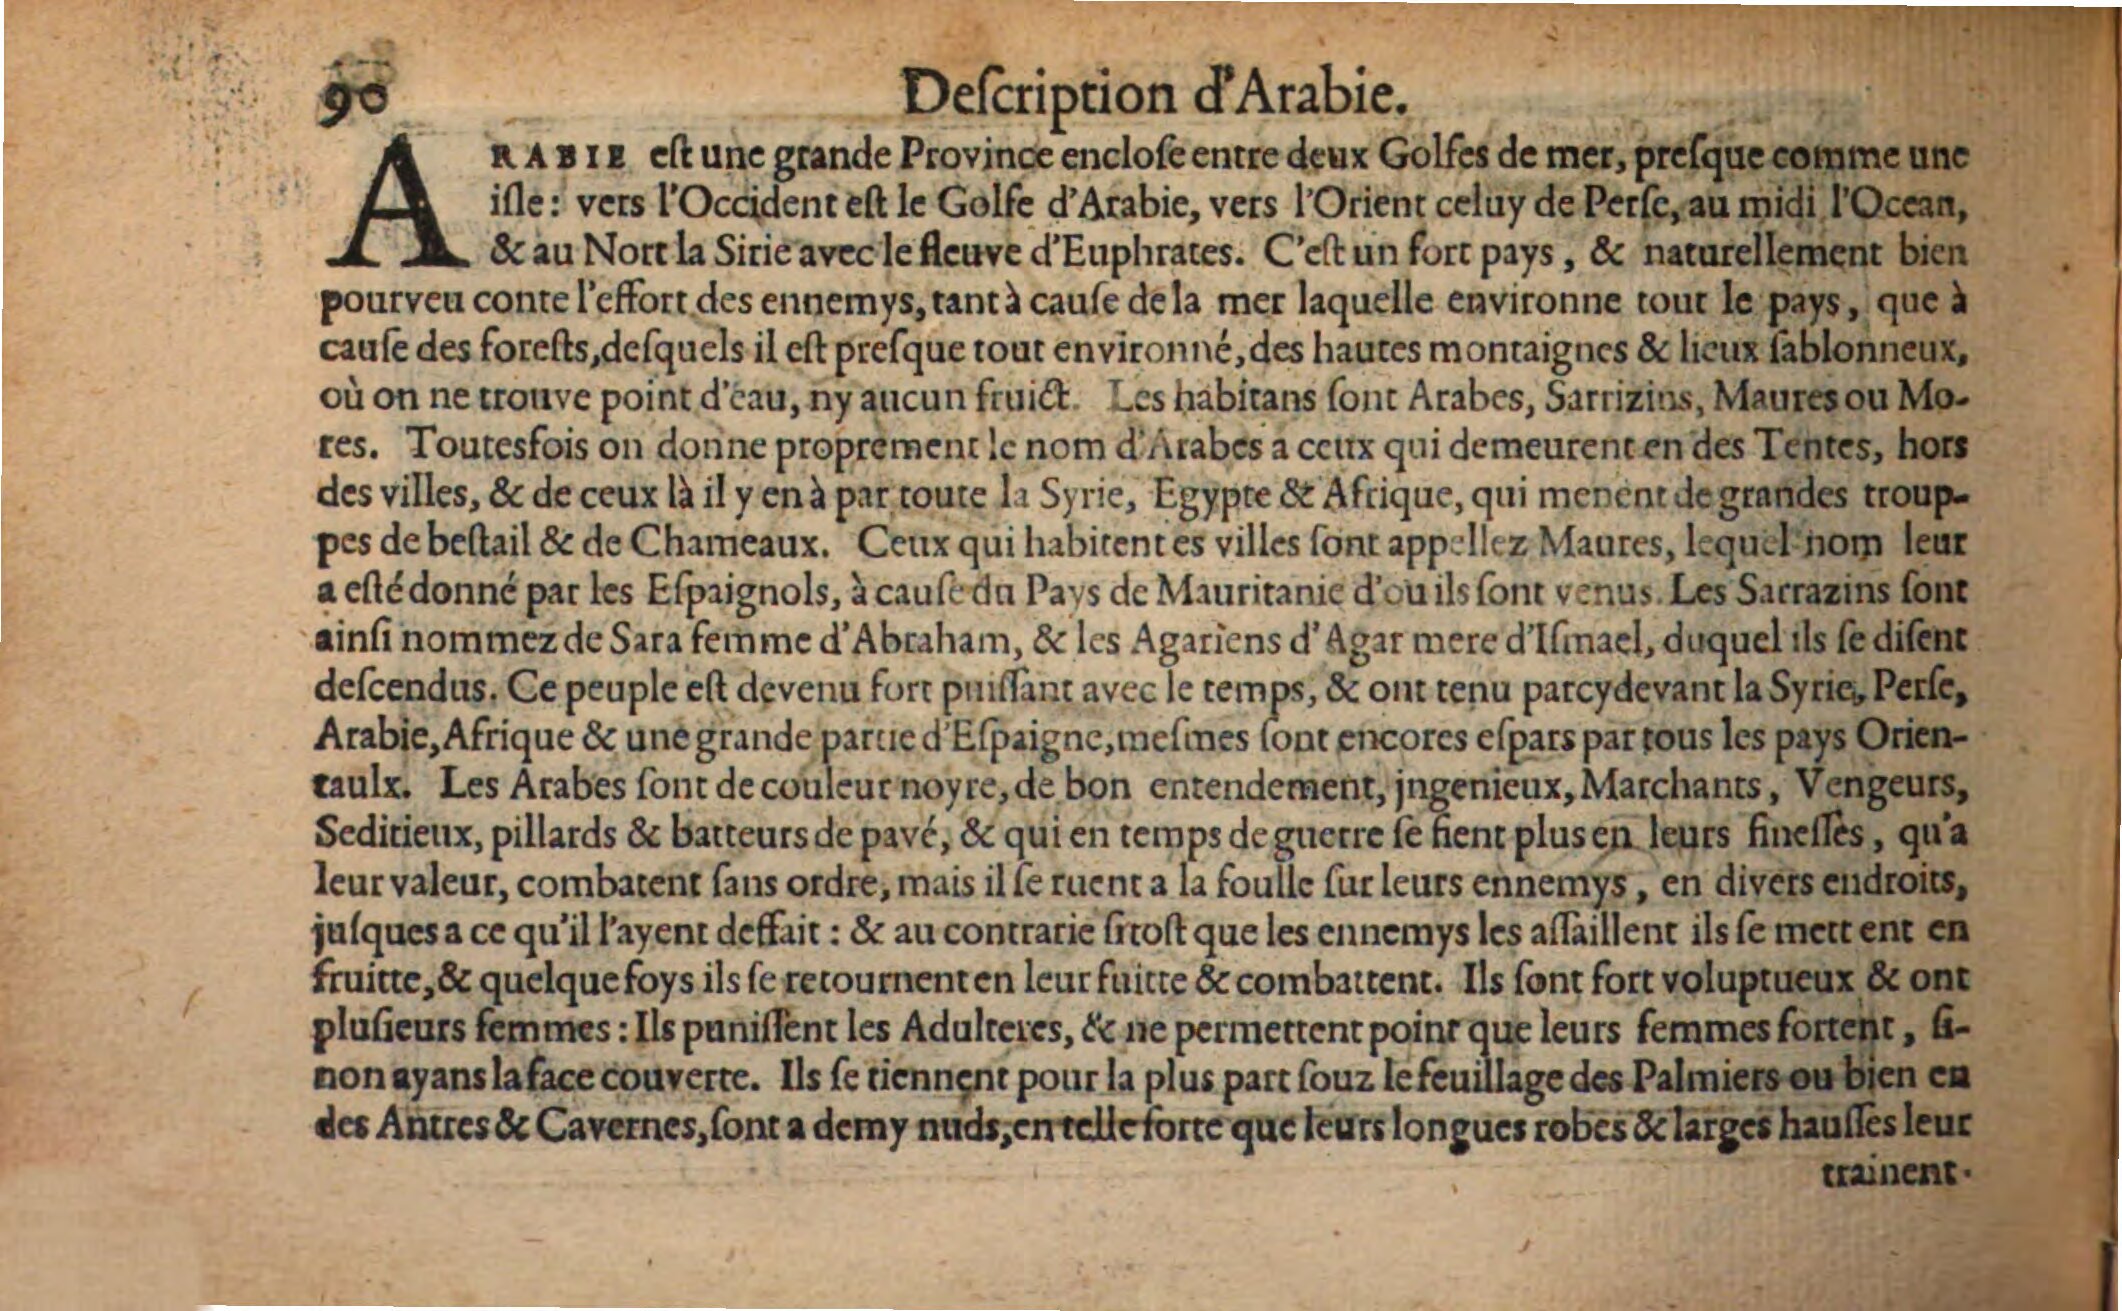 90
Deſcription d'Arabie.
ARABIE eſt une grande Province encloſe entre deux Golfes de mer, preſque comme une
iſle: vers l'Occident eſt le Golfe d'Arabie, vers l'Orient celuy de Perſe, au midi l'Ocean,
& au Nort la Sirie avec le fleuve d'Euphrates. C'eſt un fort pays, & naturellement bien
pourveu conte l'effort des ennemys, tant à cauſe de la mer laquelle environne tout le pays, que à
cauſe des foreſts, deſquels il eſt preſque tout environné, des hautes montaignes & lieux ſablonneux,
où on ne trouve point d'eau, ny aucun fruict. Les habitans ſont Arabes, Sarrizins, Maures ou Mo-
res. Toutesfois on donne proprement le nom d'Arabes a ceux qui demeurent en des Tentes, hors
des villes, & de ceux là il y en à par toute la Syrie, Egypte & Afrique, qui menent de grandes troup-
pes de beſtail & de Chameaux. Ceux qui habitent es villes ſont appellez Maures, lequel nom leur
a eſté donné par les Eſpaignols, à cauſe du Pays de Mauritanie d'ou ils ſont venus. Les Sarrazins ſont
ainſi nommez de Sara femme d'Abraham, & les Agariens d'Agar mere d'Iſmael, duquel ils ſe diſent
deſcendus. Ce peuple eſt devenu fort puiſſant avec le temps, & ont tenu parcydevant la Syrie, Perſe,
Arabie, Afrique & une grande partie d'Eſpaigne, meſmes ſont encores eſpars par tous les pays Orien-
taulx. Les Arabes ſont de couleur noyre, de bon entendement, jngenieux, Marchants, Vengeurs,
Seditieux, pillards & batteurs de pavé, & qui en temps de guerre ſe fient plus en leurs fineſſes, qu'a
leur valeur, combatent ſans ordre, mais il ſe ruent a la foulle ſur leurs ennemys, en divers endroits,
juſques a ce qu'il l'ayent deffait: & au contrarie ſitoſt que les ennemys les aſſaillent ils ſe mett ent en
fruitte, & quelque foys ils ſe retournent en leur fuitte & combattent. Ils ſont fort voluptueux & ont
pluſieurs femmes: Ils puniſſent les Adulteres, & ne permettent point que leurs femmes ſortent, ſi-
non ayans la face couverte. Ils ſe tiennent pour la plus part ſouz le feuillage des Palmiers ou bien en
des Antres & Cavernes, ſont a demy nuds, en telle ſorte que leurs longues robes & larges hauſſes leur
trainent.